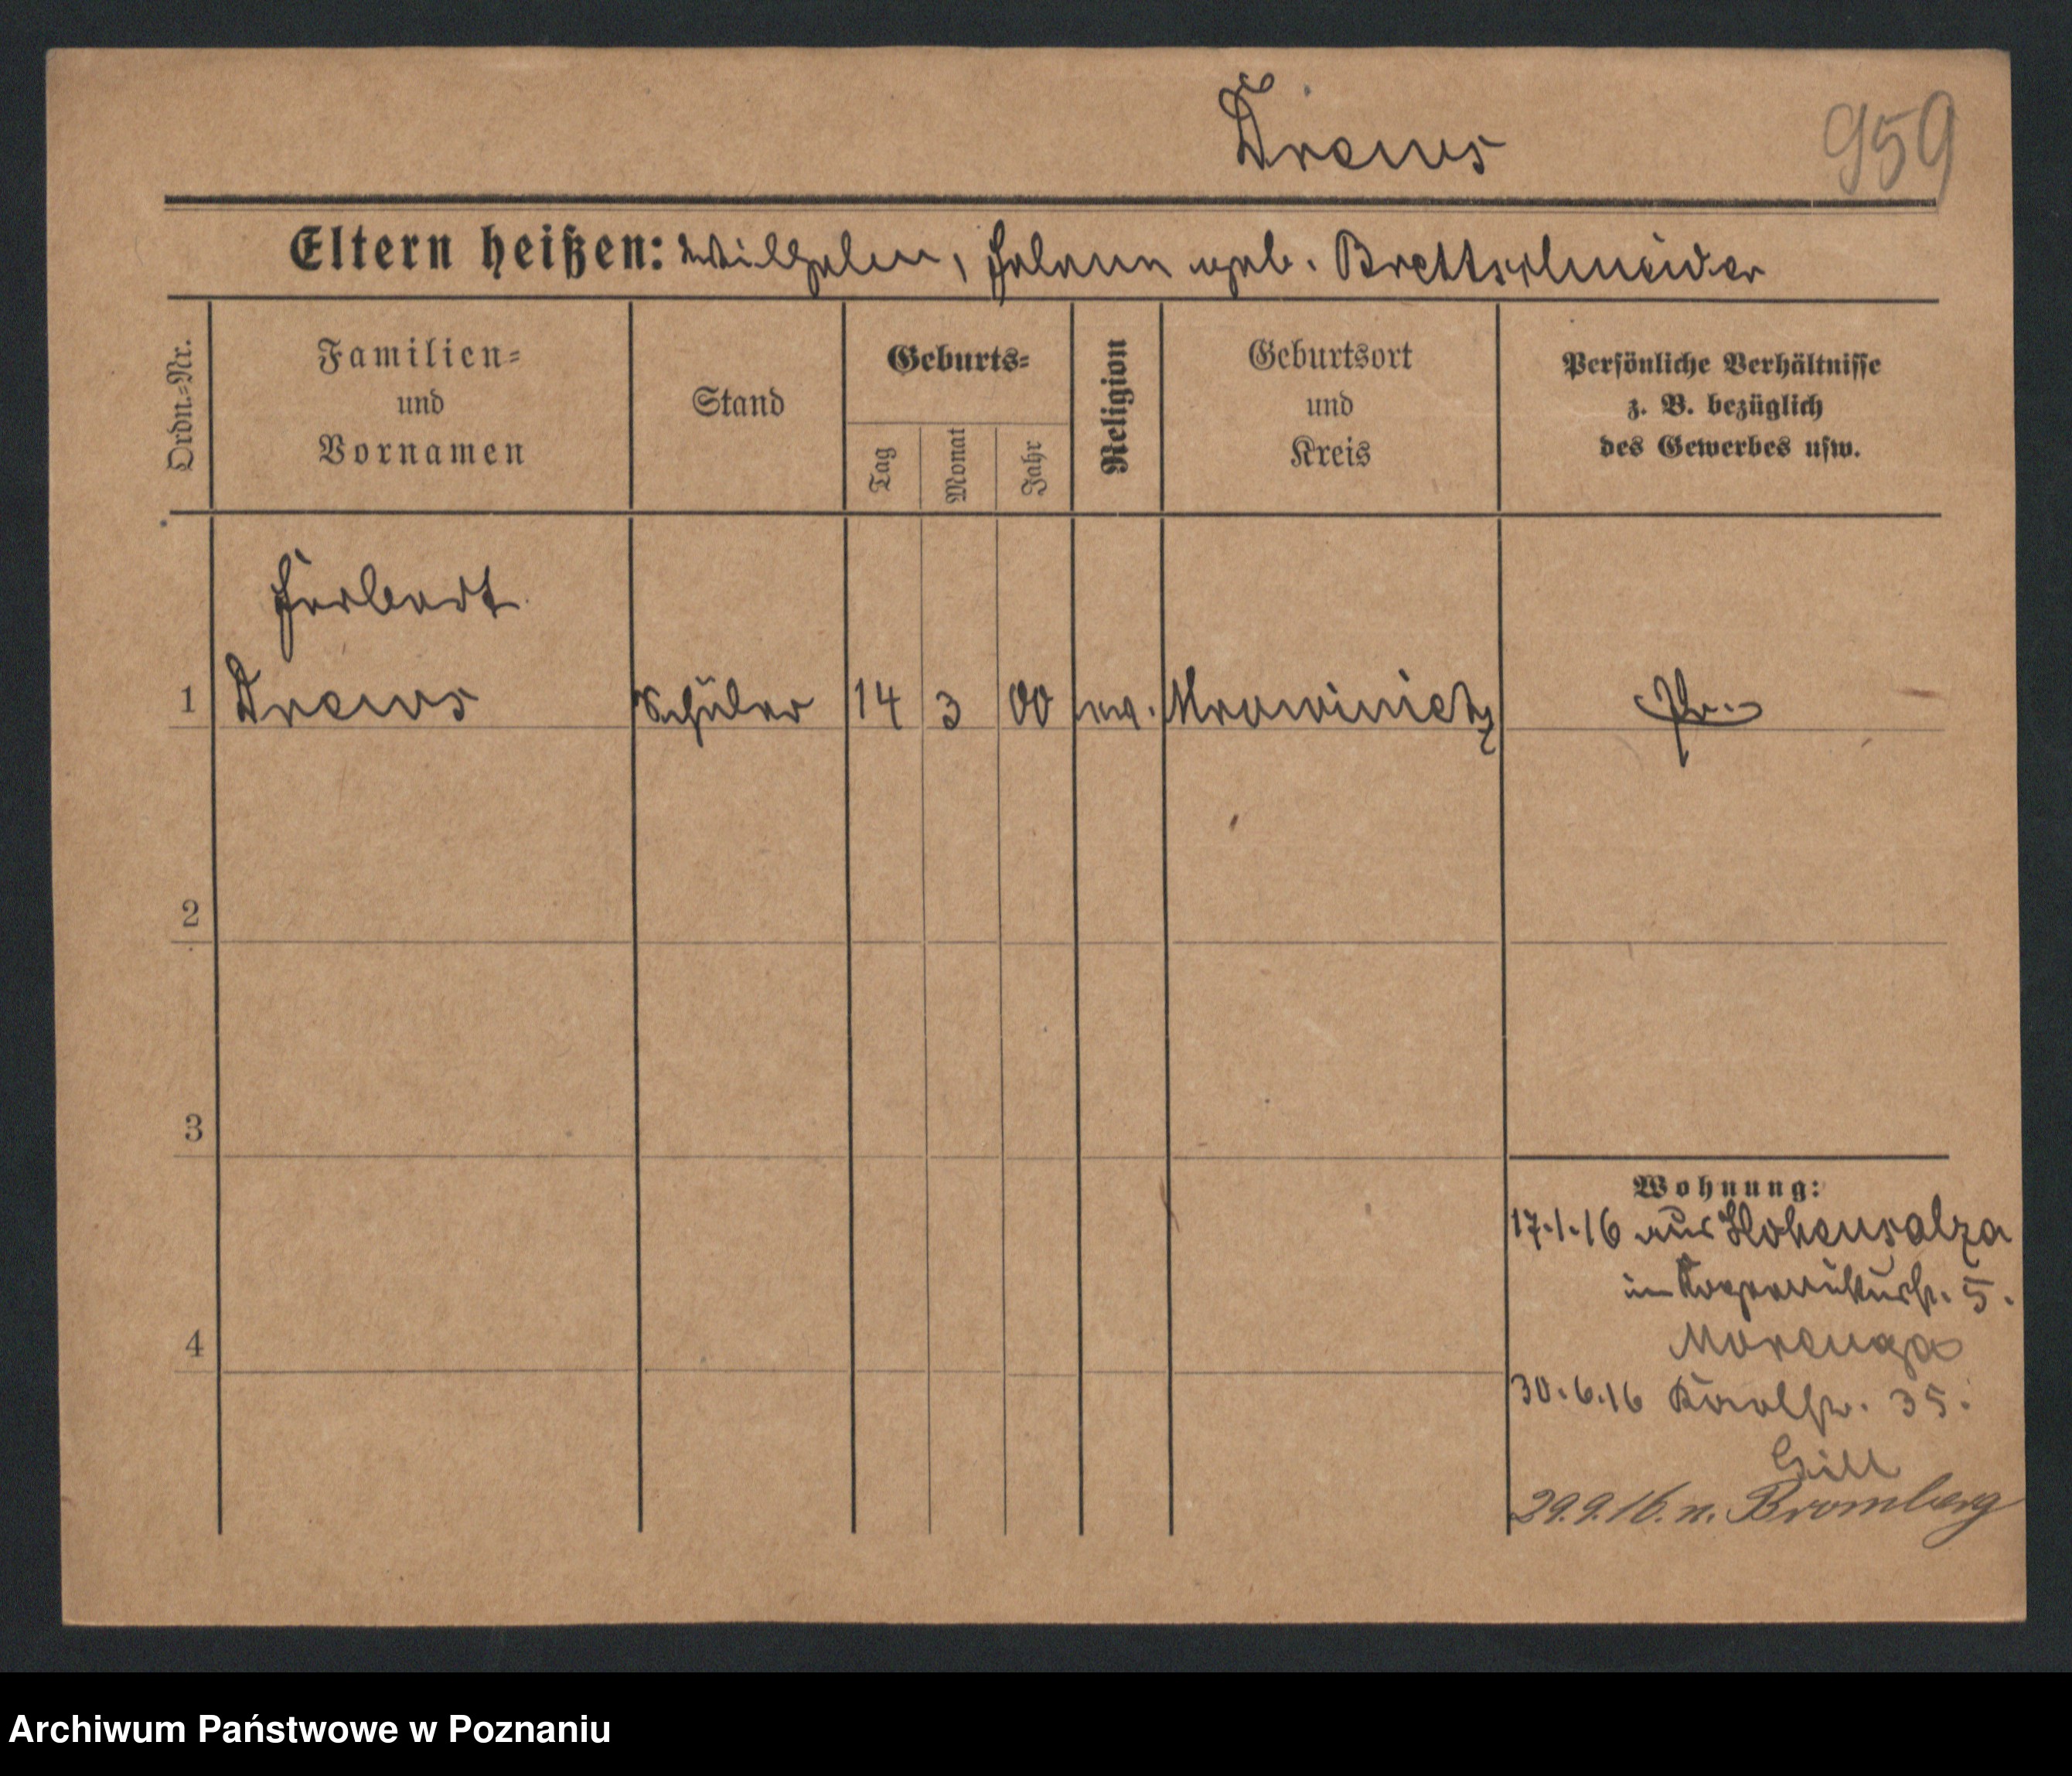 Drews
959
Eltern heißen: Wilhelm, Helene geb. Brettschneider
Ordn.-Nr.
Familien-
und
Vornamen
Stand
Geburts-
Tag
Monat
Jahr
Religion
Geburtsort
und
Kreis
Persönliche Verhältnisse
z. B. bezüglich
des Gewerbes usw.
Herbert
1 Drews Schüler 14 3 00 ev. Mrowinietz Pr.
2
3
4
Wohnung:
17.1.16 aus Hohensalza
in 5.
30.6.16 35.
Gill
29.9.16. n. Bromberg
Archiwum Państwowe w Poznaniu